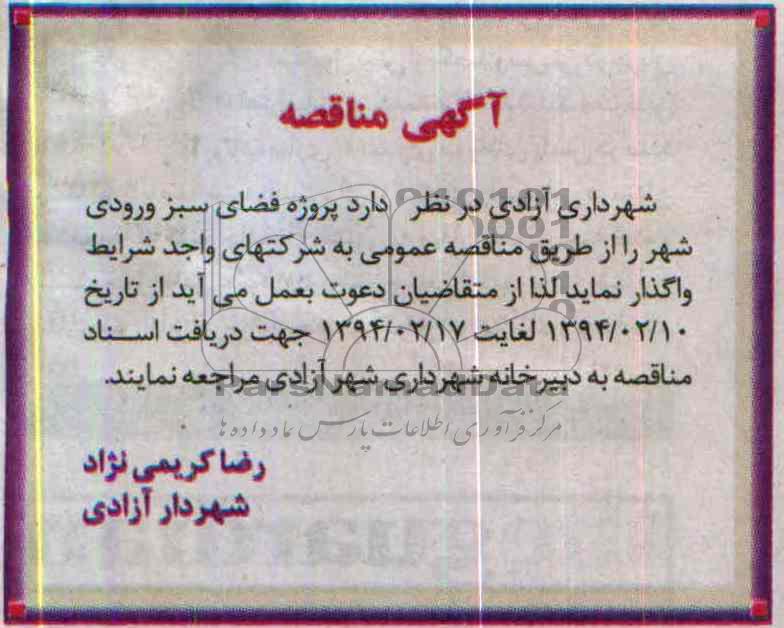 آگهی مناقصه
شهرداری آزادی در نظر دارد پروژه فضای سبز ورودی
شهر را از طریق مناقصه عمومی به شرکتهای واجد شرایط
واگذار نماید لذا از متقاضیان دعوت بعمل می آید از تاریخ
۱۳۹۴/۰۲/۱۰ لغایت ۱۳۹۴/۰۲/۱۷ جهت دریافت اسناد
مناقصه به دبیرخانه شهرداری شهر آزادی مراجعه نمایند.
ParsNamadData
مرکز فرآوری اطلاعات پارس نماد داده ها
رضا کریمی نژاد
شهردار آزادی